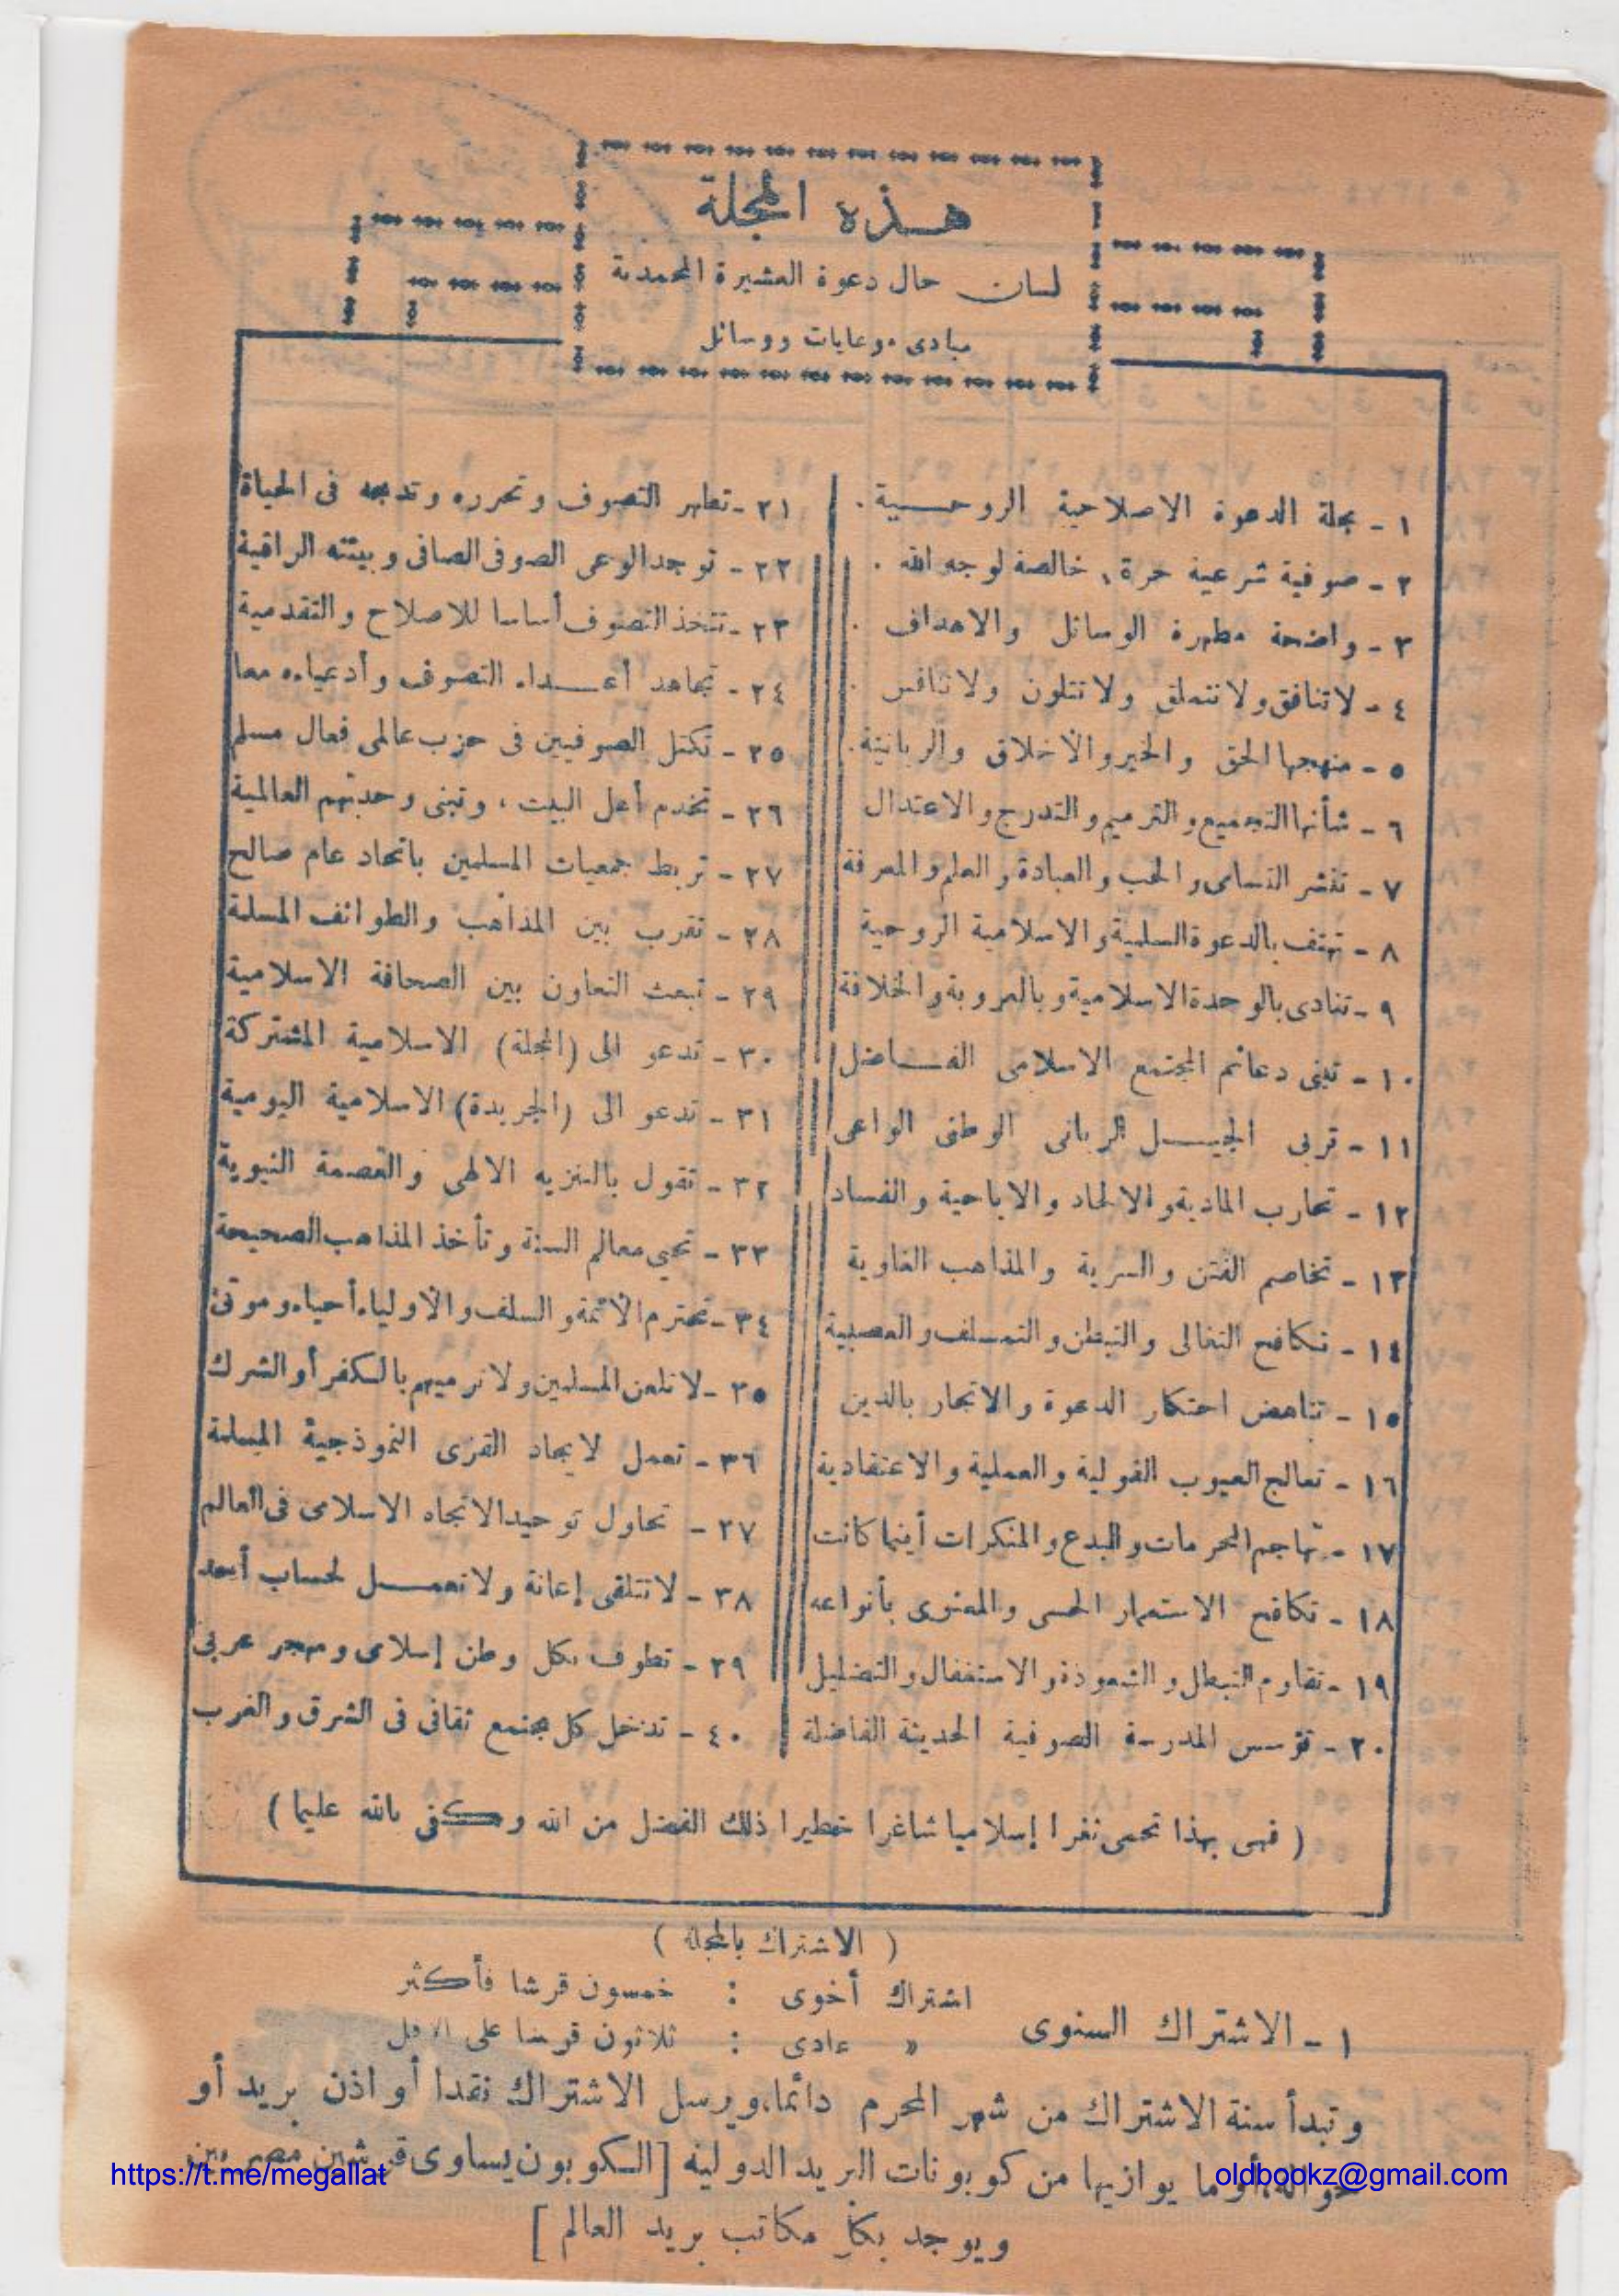 هذه المجلة
لسان حال دعوة العشيرة المحمدية
مبادىء وغايات ووسائل
١ - مجلة الدعوة الاصلاحية الروحية .
٢ - صوفية شرعية حرة، خالصة لوجه الله .
٣ - واضحة مطهرة الوسائل والاهداف .
٤ - لا تنافق ولا تتملق ولا تتلون ولا تنافس .
٥ - منهجها الحق والخير والأخلاق والربانية .
٦ - شأنها التجميع والترميم والتدرج والاعتدال
٧ - تنشر التسامى والحب والعبادة والعلم والمعرفة
٨ - تهتف بالدعوة السلمية والاسلامية الروحية
٩ - تنادى بالوحدة الاسلامية وبالعروبة والخلافة
١٠ - تبنى دعائم المجتمع الاسلامى الفاضل
١١ - تربى الجيل الربانى الوطنى الواعى
١٢ - تحارب المادية والالحاد والاباحية والفساد
١٣ - تخاصم الفتن والسرية والمذاهب الغاوية
١٤ - تكافح التغالى والتبطن والتمسلف والعصبية
١٥ - تناهض احتكار الدعوة والاتجار بالدين
١٦ - تعالج العيوب القولية والعملية والاعتقادية
١٧ - تهاجم المحرمات والبدع والمنكرات أينما كانت
١٨ - تكافح الاستعمار الحسى والمعنوى بأنواعه
١٩ - تقاوم التبطل والشعوذة والاستغفال والتضليل
٢٠ - تؤسس المدرسة الصوفية الحديثة الفاضلة
٢١ - تطهر التصوف وتحرره وتدمجه فى الحياة
٢٢ - توجد الوعى الصوفى الصافى وبيئته الراقية
٢٣ - تتخذ التصوف أساسا للاصلاح والتقدمية
٢٤ - تجاهد أعداء التصوف وأدعياءه معا
٢٥ - تكتل الصوفيين فى حزب عالمى فعال مسلم
٢٦ - تخدم أهل البيت، وتبنى وحدتهم العالمية
٢٧ - تربط جمعيات المسلمين باتحاد عام صالح
٢٨ - تقرب بين المذاهب والطوائف المسلمة
٢٩ - تبعث التعاون بين الصحافة الاسلامية
٣٠ - تدعو الى (المجلة) الاسلامية المشتركة
٣١ - تدعو الى (الجريدة) الاسلامية اليومية
٣٢ - تقول بالتنزيه الالهى والعصمة النبوية
٣٣ - تحيى معالم السنة وتأخذ المذاهب الصحيحة
٣٤ - تحترم الأئمة والسلف والأولياء أحياء وموتى
٣٥ - لا تلعن المسلمين ولا ترميهم بالكفر أو الشرك
٣٦ - تعمل لايجاد القرى النموذجية المسلمة
٣٧ - تحاول توحيد الاتجاه الاسلامى فى العالم
٣٨ - لا تتلقى إعانة ولا تعمل لحساب أحد
٣٩ - تطوف بكل وطن إسلامى ومهجر عربى
٤٠ - تدخل كل مجتمع ثقافى فى الشرق والغرب
( فهى بهذا تحمى ثغرا إسلاميا شاغرا خطيرا ذلك الفضل من الله وكفى بالله عليما )
( الاشتراك بالمجلة )
١ - الاشتراك السنوى
اشتراك أخوى : خمسون قرشا فأكثر
« عادى : ثلاثون قرشا على الاقل
وتبدأ سنة الاشتراك من شهر المحرم دائما، ويرسل الاشتراك نقدا أو اذن بريد أو
حوالة، أو ما يوازيها من كوبونات البريد الدولية [ الكوبون يساوى قرشين مصريين
ويوجد بكل مكاتب بريد العالم ]
https://t.me/megallat
oldbookz@gmail.com